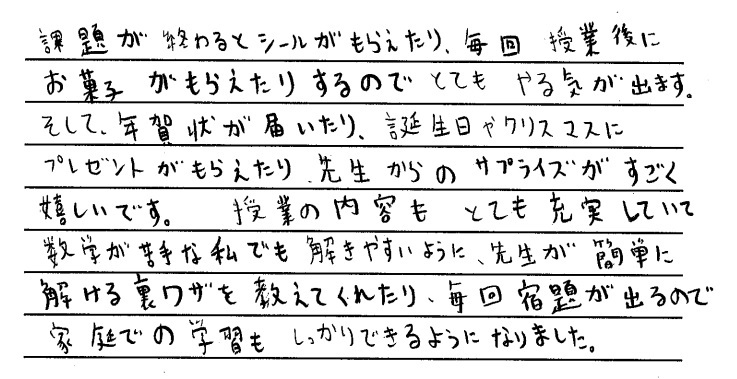 課題が終わるとシールがもらえたり、毎回 授業後に
お菓子がもらえたりするのでとても やる気が出ます。
そして、年賀状が届いたり、誕生日やクリスマスに
プレゼントがもらえたり、先生からのサプライズがすごく
嬉しいです。 授業の内容も とても充実していて
数学が苦手な私でも解きやすいように、先生が簡単に
解ける裏ワザを教えてくれたり、毎回宿題が出るので
家庭での学習も しっかりできるようになりました。